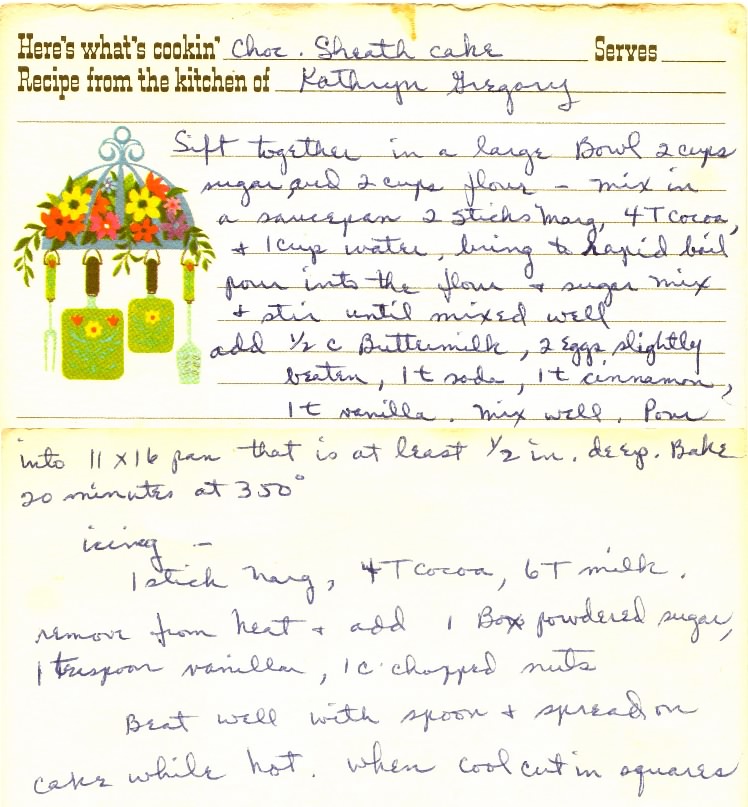 Here's what's cookin' Choc. Sheath cake Serves
Recipe from the kitchen of Kathryn Gregory
Sift together in a large Bowl 2 cups
sugar and 2 cups flour - mix in
a saucepan 2 sticks marg, 4T cocoa,
+ 1 cup water, bring to rapid boil
pour into the flour + sugar mix
+ stir until mixed well
add 1/2 c Buttermilk, 2 eggs slightly
beaten, 1t soda, 1t cinnamon,
1t vanilla. Mix well. Pour
into 11 x 16 pan that is at least 1/2 in. deep. Bake
20 minutes at 350°
icing -
1 stick marg, 4T cocoa, 6T milk.
remove from heat + add 1 Box powdered sugar,
1 teaspoon vanilla, 1 c. chopped nuts
Beat well with spoon + spread on
cake while hot. When cool cut in squares